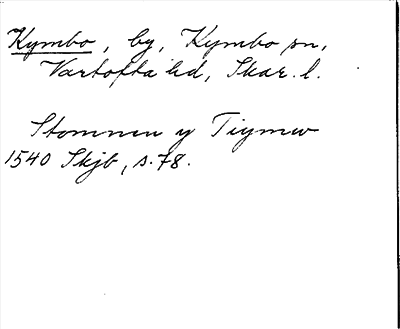 Kymbo, by, Kymbo sn,
Vartofta hd, Skar. l.
Stommen y Tiymbo
1540 Skjb, s. 78.